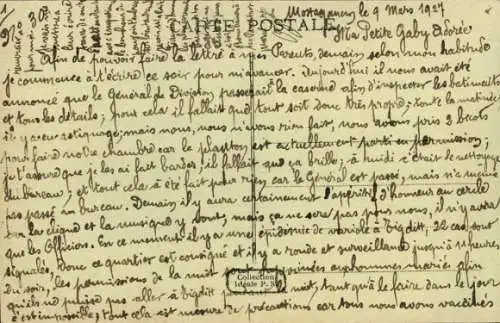 1
N° 30
CARTE POSTALE
Mostaganem, le 9 Mars 1927
Ma Petite Gaby Adorée
Afin de pouvoir faire la lettre à mes Parents, demain selon mon habitude
je commence à t'écrire ce soir pour m'avancer. Aujourd'hui il nous avait été
annoncé que le Général de Division passerait la caserne afin d'inspecter les batiments
et tous les détails; pour cela il fallait que tout soit donc très propre; toute la matinée
il y a eu astiquage; mais nous, nous n'avons rien fait, nous avons pris 3 bicots
pour faire notre chambre car le planton est actuellement parti en permission;
je t'assure que je les ai fait barder, il fallait que ça brille; à midi c'était le nettoyage
du bureau, et tout cela a été fait pour rien car le Général est passé, mais n'a même
pas passé au bureau. Demain il y aura certainement l'apéritif d'honneur au cercle
et la musique y sont, mais ça ne sera pas pour nous, il n'y aura
que les Officiers. En ce moment il y a une épidémie de variole à Tigditt, 12 cas sont
signalés, donc ce quartier est consigné et il y a ronde et surveillance jusqu'à 11 heures
du soir, les permissions de la nuit mariés afin
qu'ils ne puissent pas aller à Tigditt nuit, tant qu'à le faire dans le jour
c'est impossible, tout cela est mesure de précautions car tous nous avons vaccinés
Collection
Idéale P.S